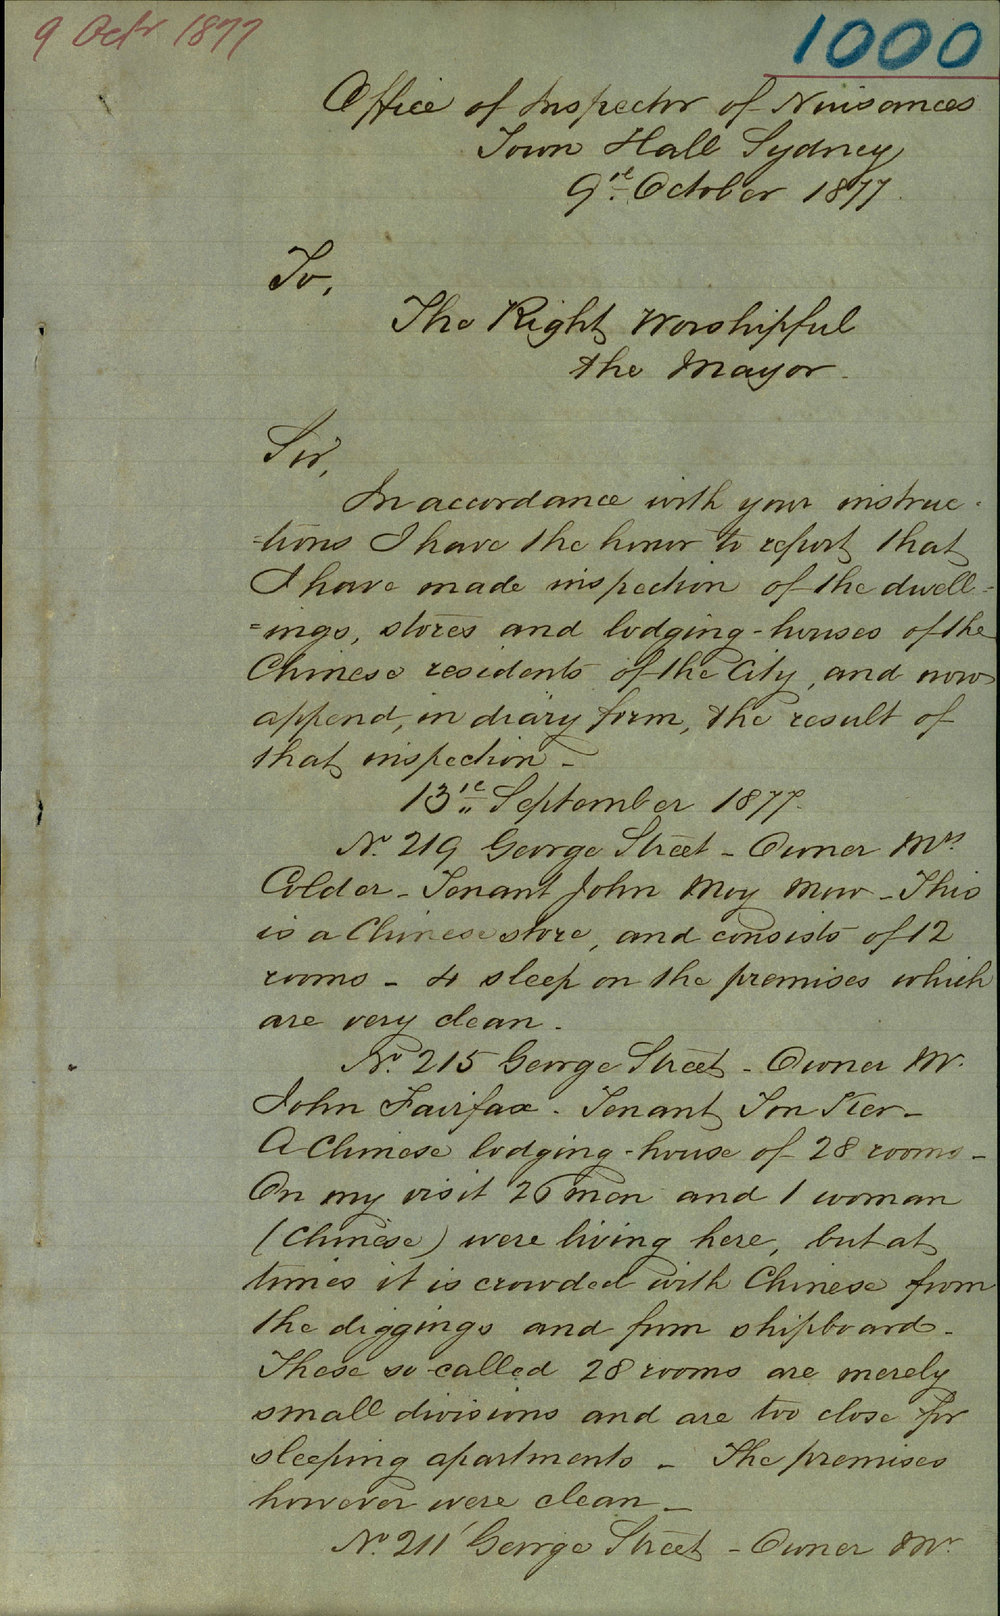 9 Octr 1877
1000
Office of Inspector of Nuisances
Town Hall Sydney
9th October 1877.
To,
The Right Worshipful
the Mayor.
Sir,
In accordance with your instruc-
=tions I have the honor to report that
I have made inspection of the dwell-
=ings, stores and lodging-houses of the
Chinese residents of the City, and now
append, in diary form, the result of
that inspection -
13th September 1877.
No. 219 George Street - Owner Mrs.
Colder - Tenant John Moy Mow - This
is a Chinese store, and consists of 12
rooms - 4 sleep on the premises which
are very clean.
No. 215 George Street - Owner Mr.
John Fairfax - Tenant Ton -
A Chinese lodging-house of 28 rooms -
On my visit 26 men and 1 woman
(Chinese) were living here, but at
times it is crowded with Chinese from
the diggings and from shipboard -
These so-called 28 rooms are merely
small divisions and are too close for
sleeping apartments - The premises
however were clean -
No. 211 George Street - Owner Mr.